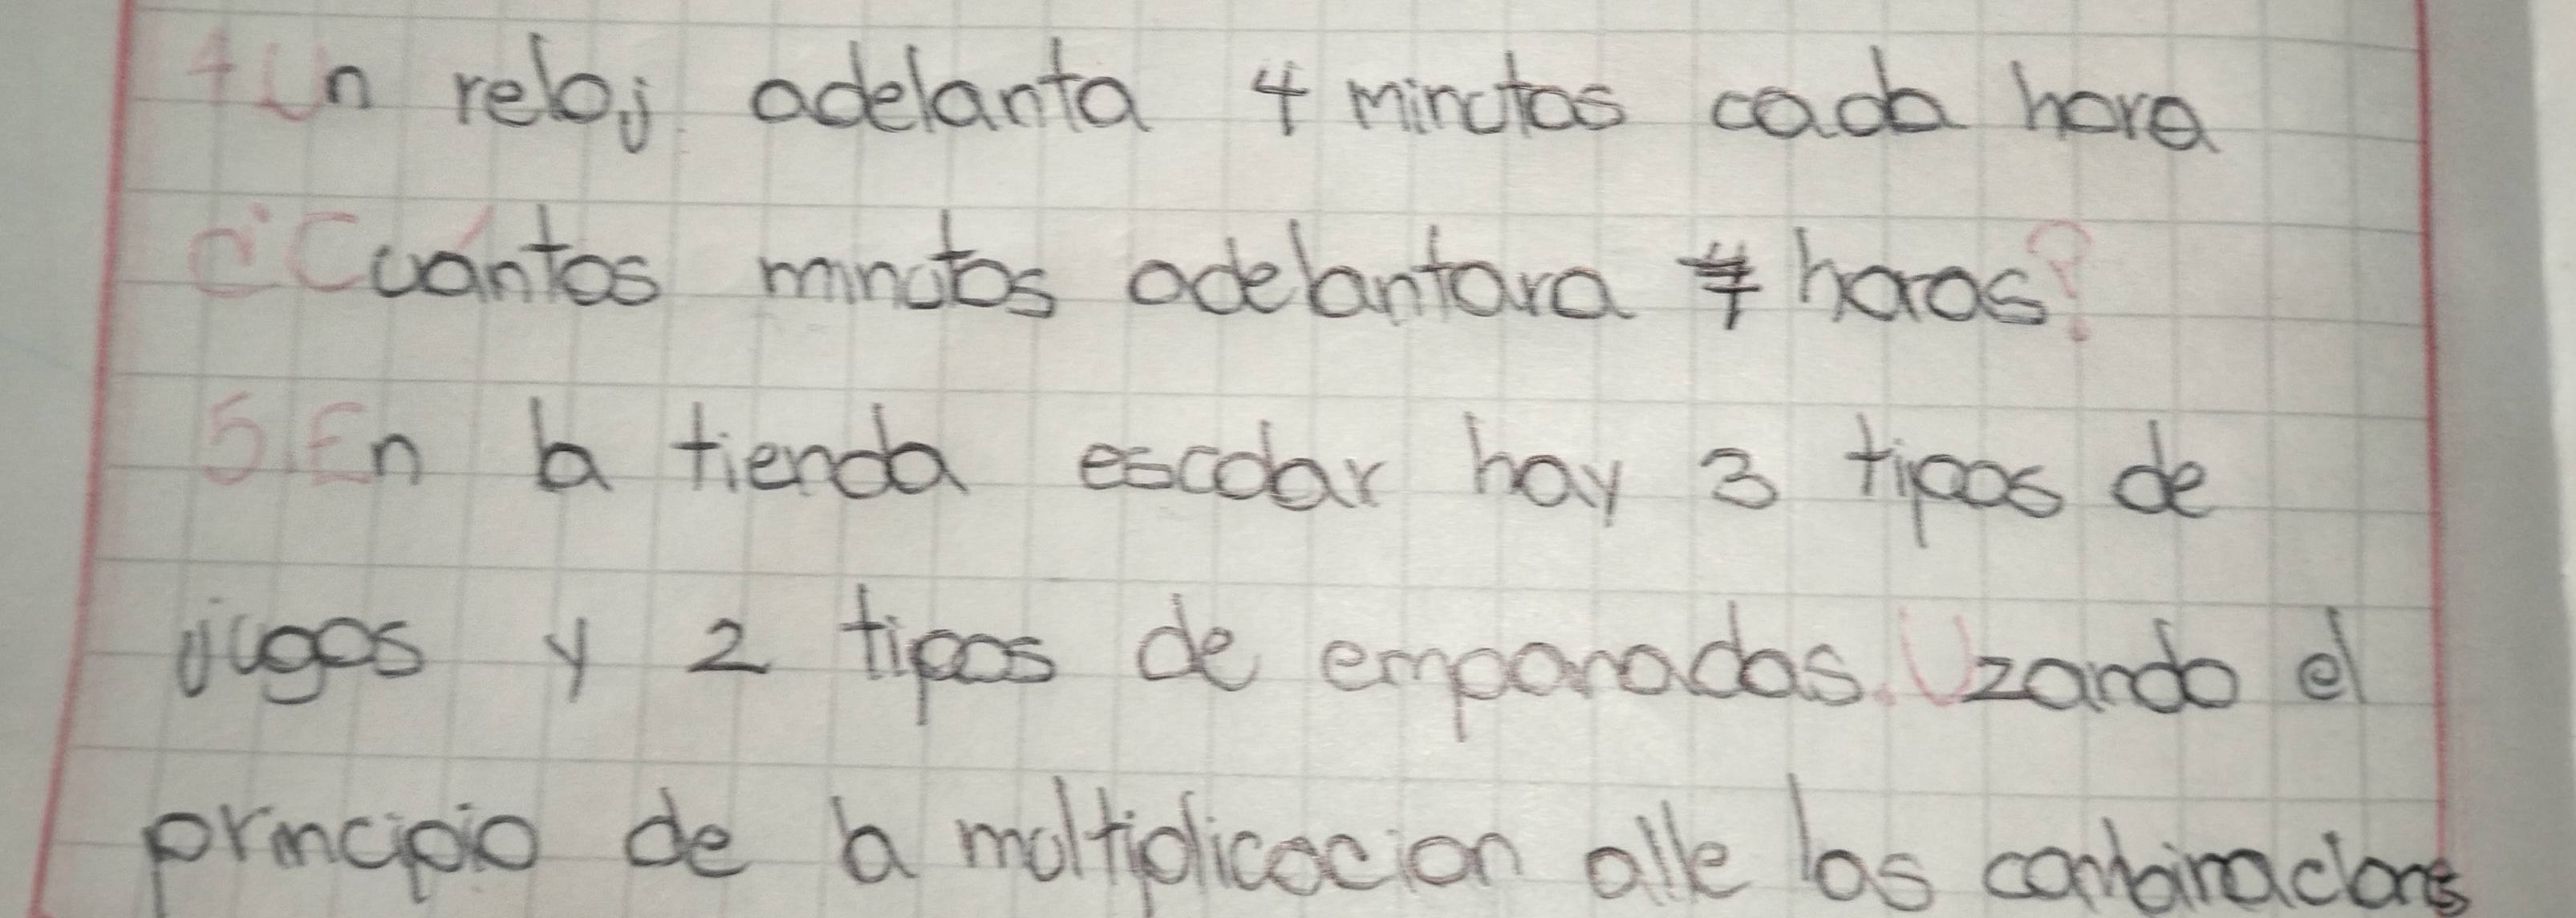 4 Un reloj adelanta 4 minutos cada hora
¿Cuántos minutos adelantara 7 horas?
5. En la tienda escolar hay 3 tipos de
jugos y 2 tipos de empanadas. Uzando el
principio de la multiplicacion alle las combinaciones